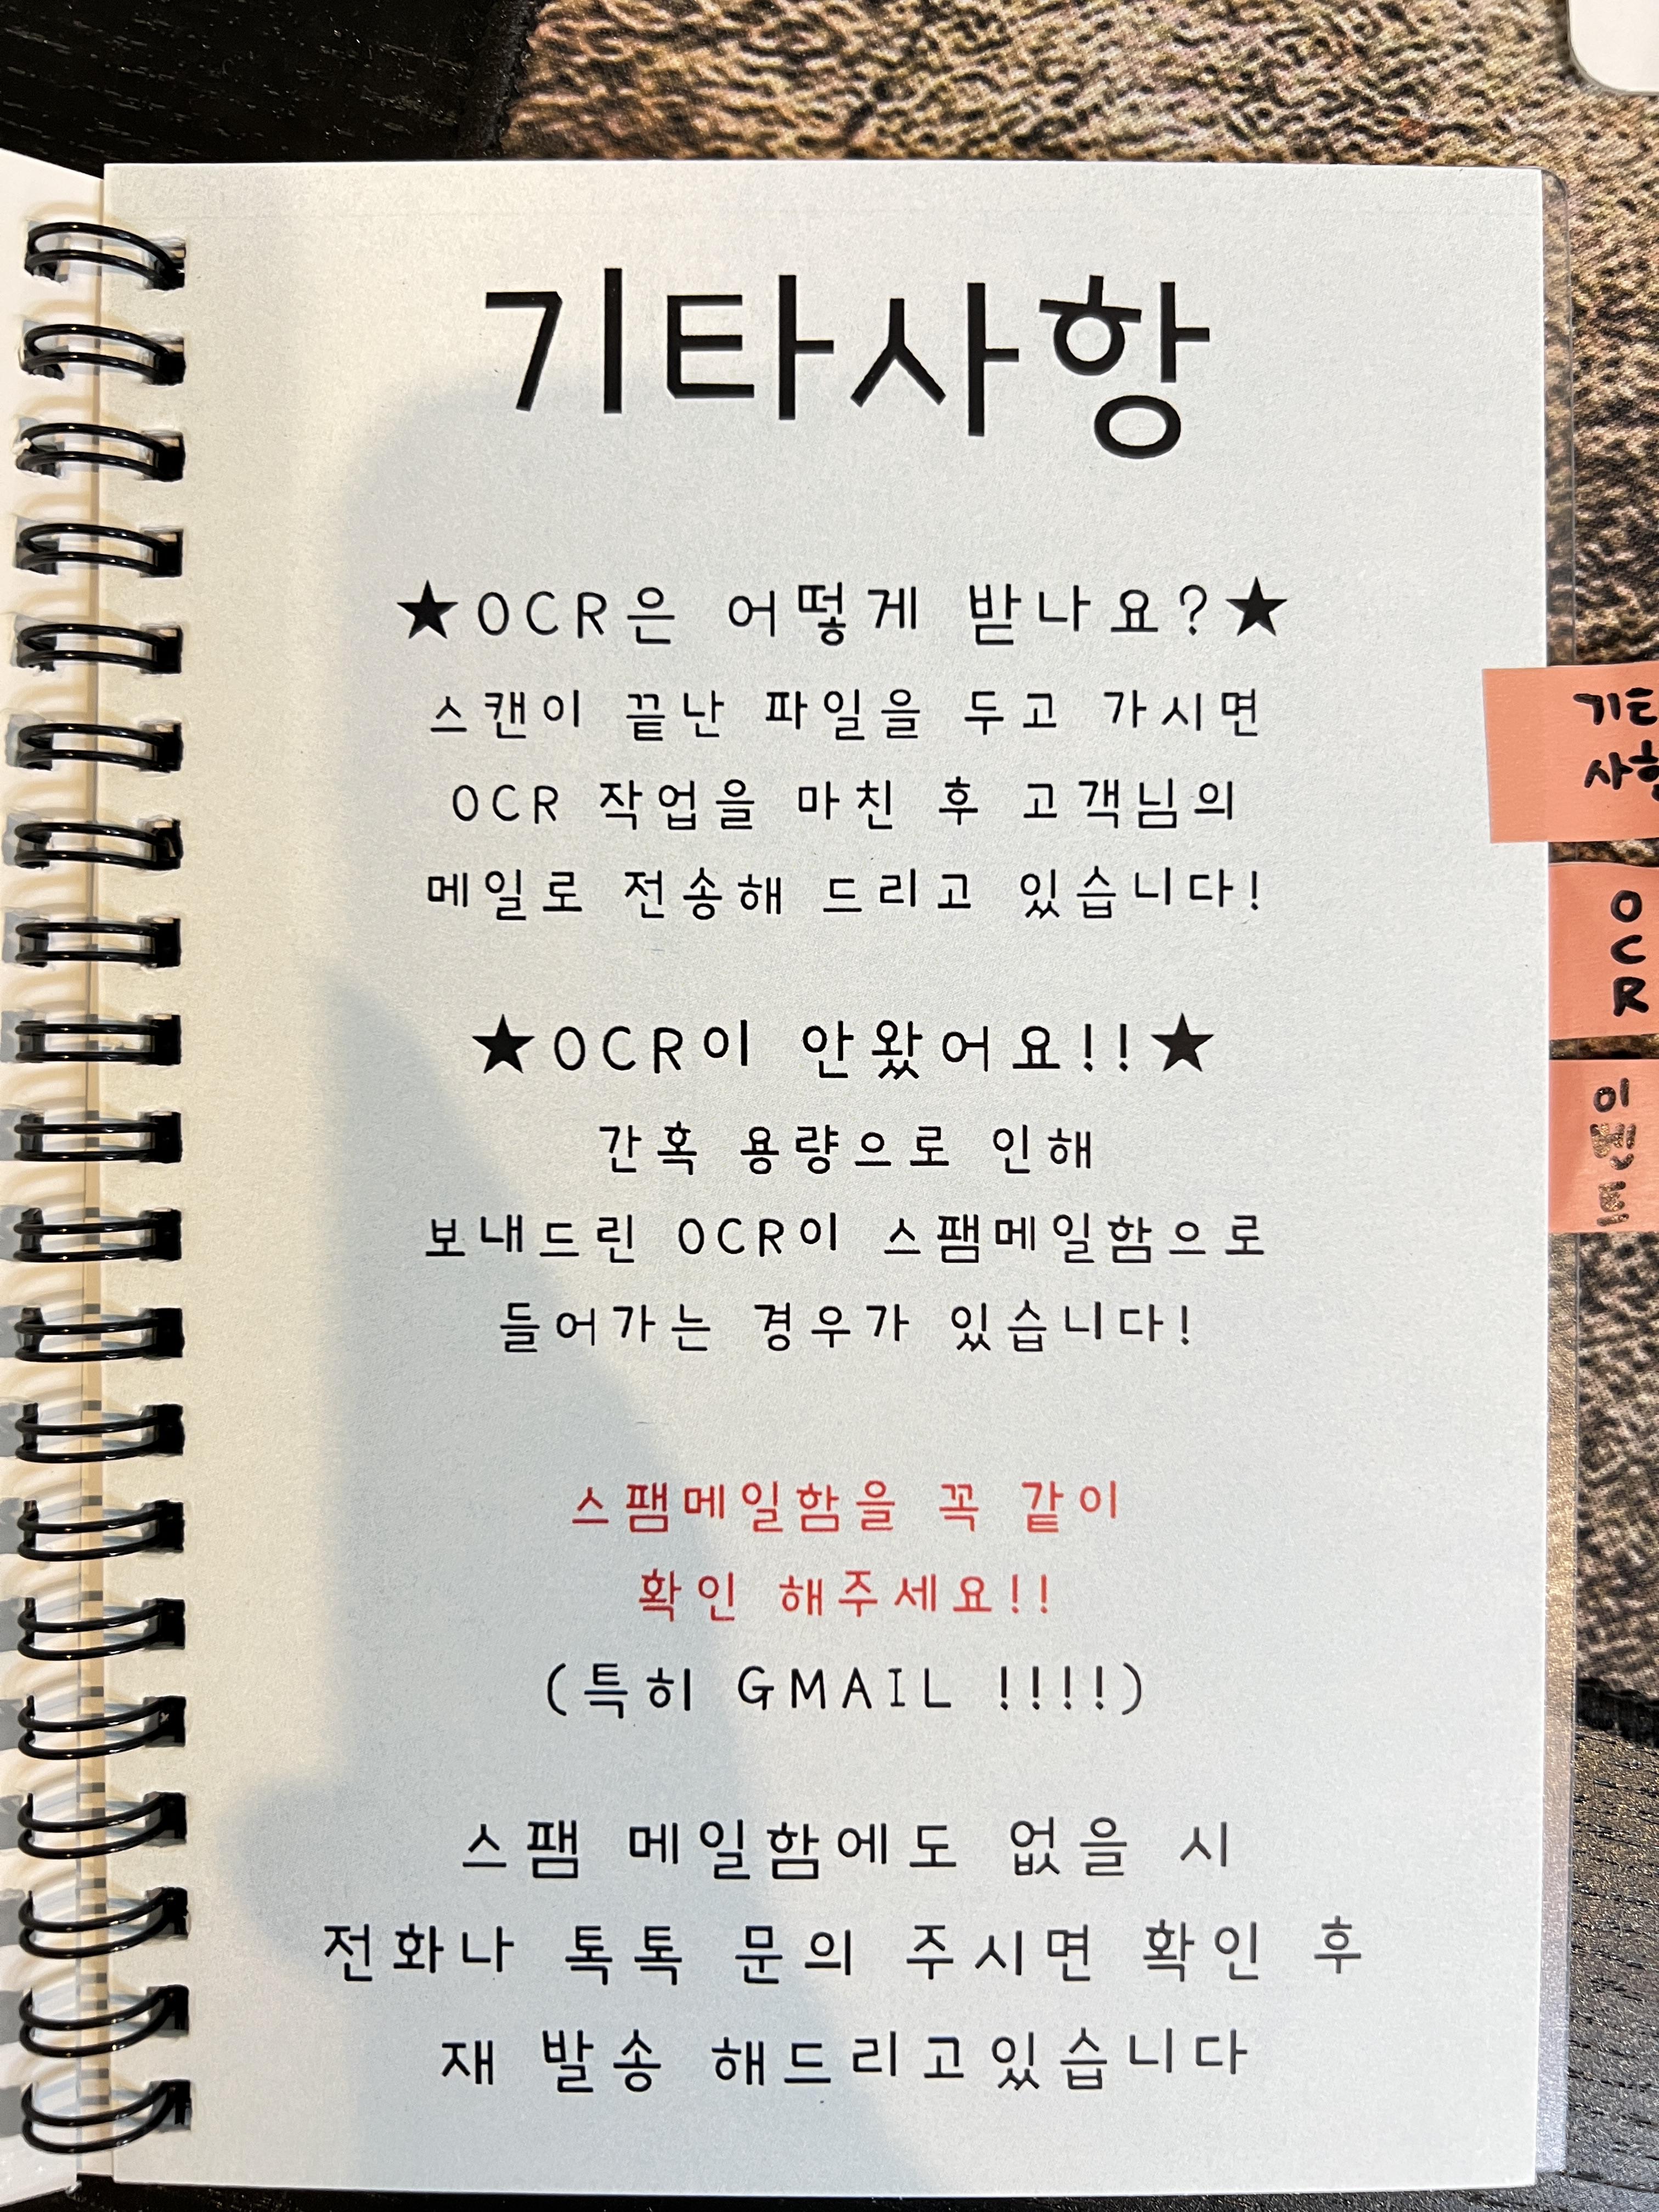 기타사항
★OCR은 어떻게 받나요?★
스캔이 끝난 파일을 두고 가시면
OCR 작업을 마친 후 고객님의
메일로 전송해 드리고 있습니다!
★OCR이 안왔어요!!★
간혹 용량으로 인해
보내드린 OCR이 스팸메일함으로
들어가는 경우가 있습니다!
스팸메일함을 꼭 같이
확인 해주세요!!
(특히 GMAIL !!!!)
스팸 메일함에도 없을 시
전화나 톡톡 문의 주시면 확인 후
재 발송 해드리고있습니다
기타
사항
OCR
이벤트